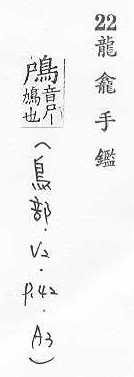 22 龍龕手鑑
鳲音尸
尸鳩也
(鳥部.V2.P.42.A3)